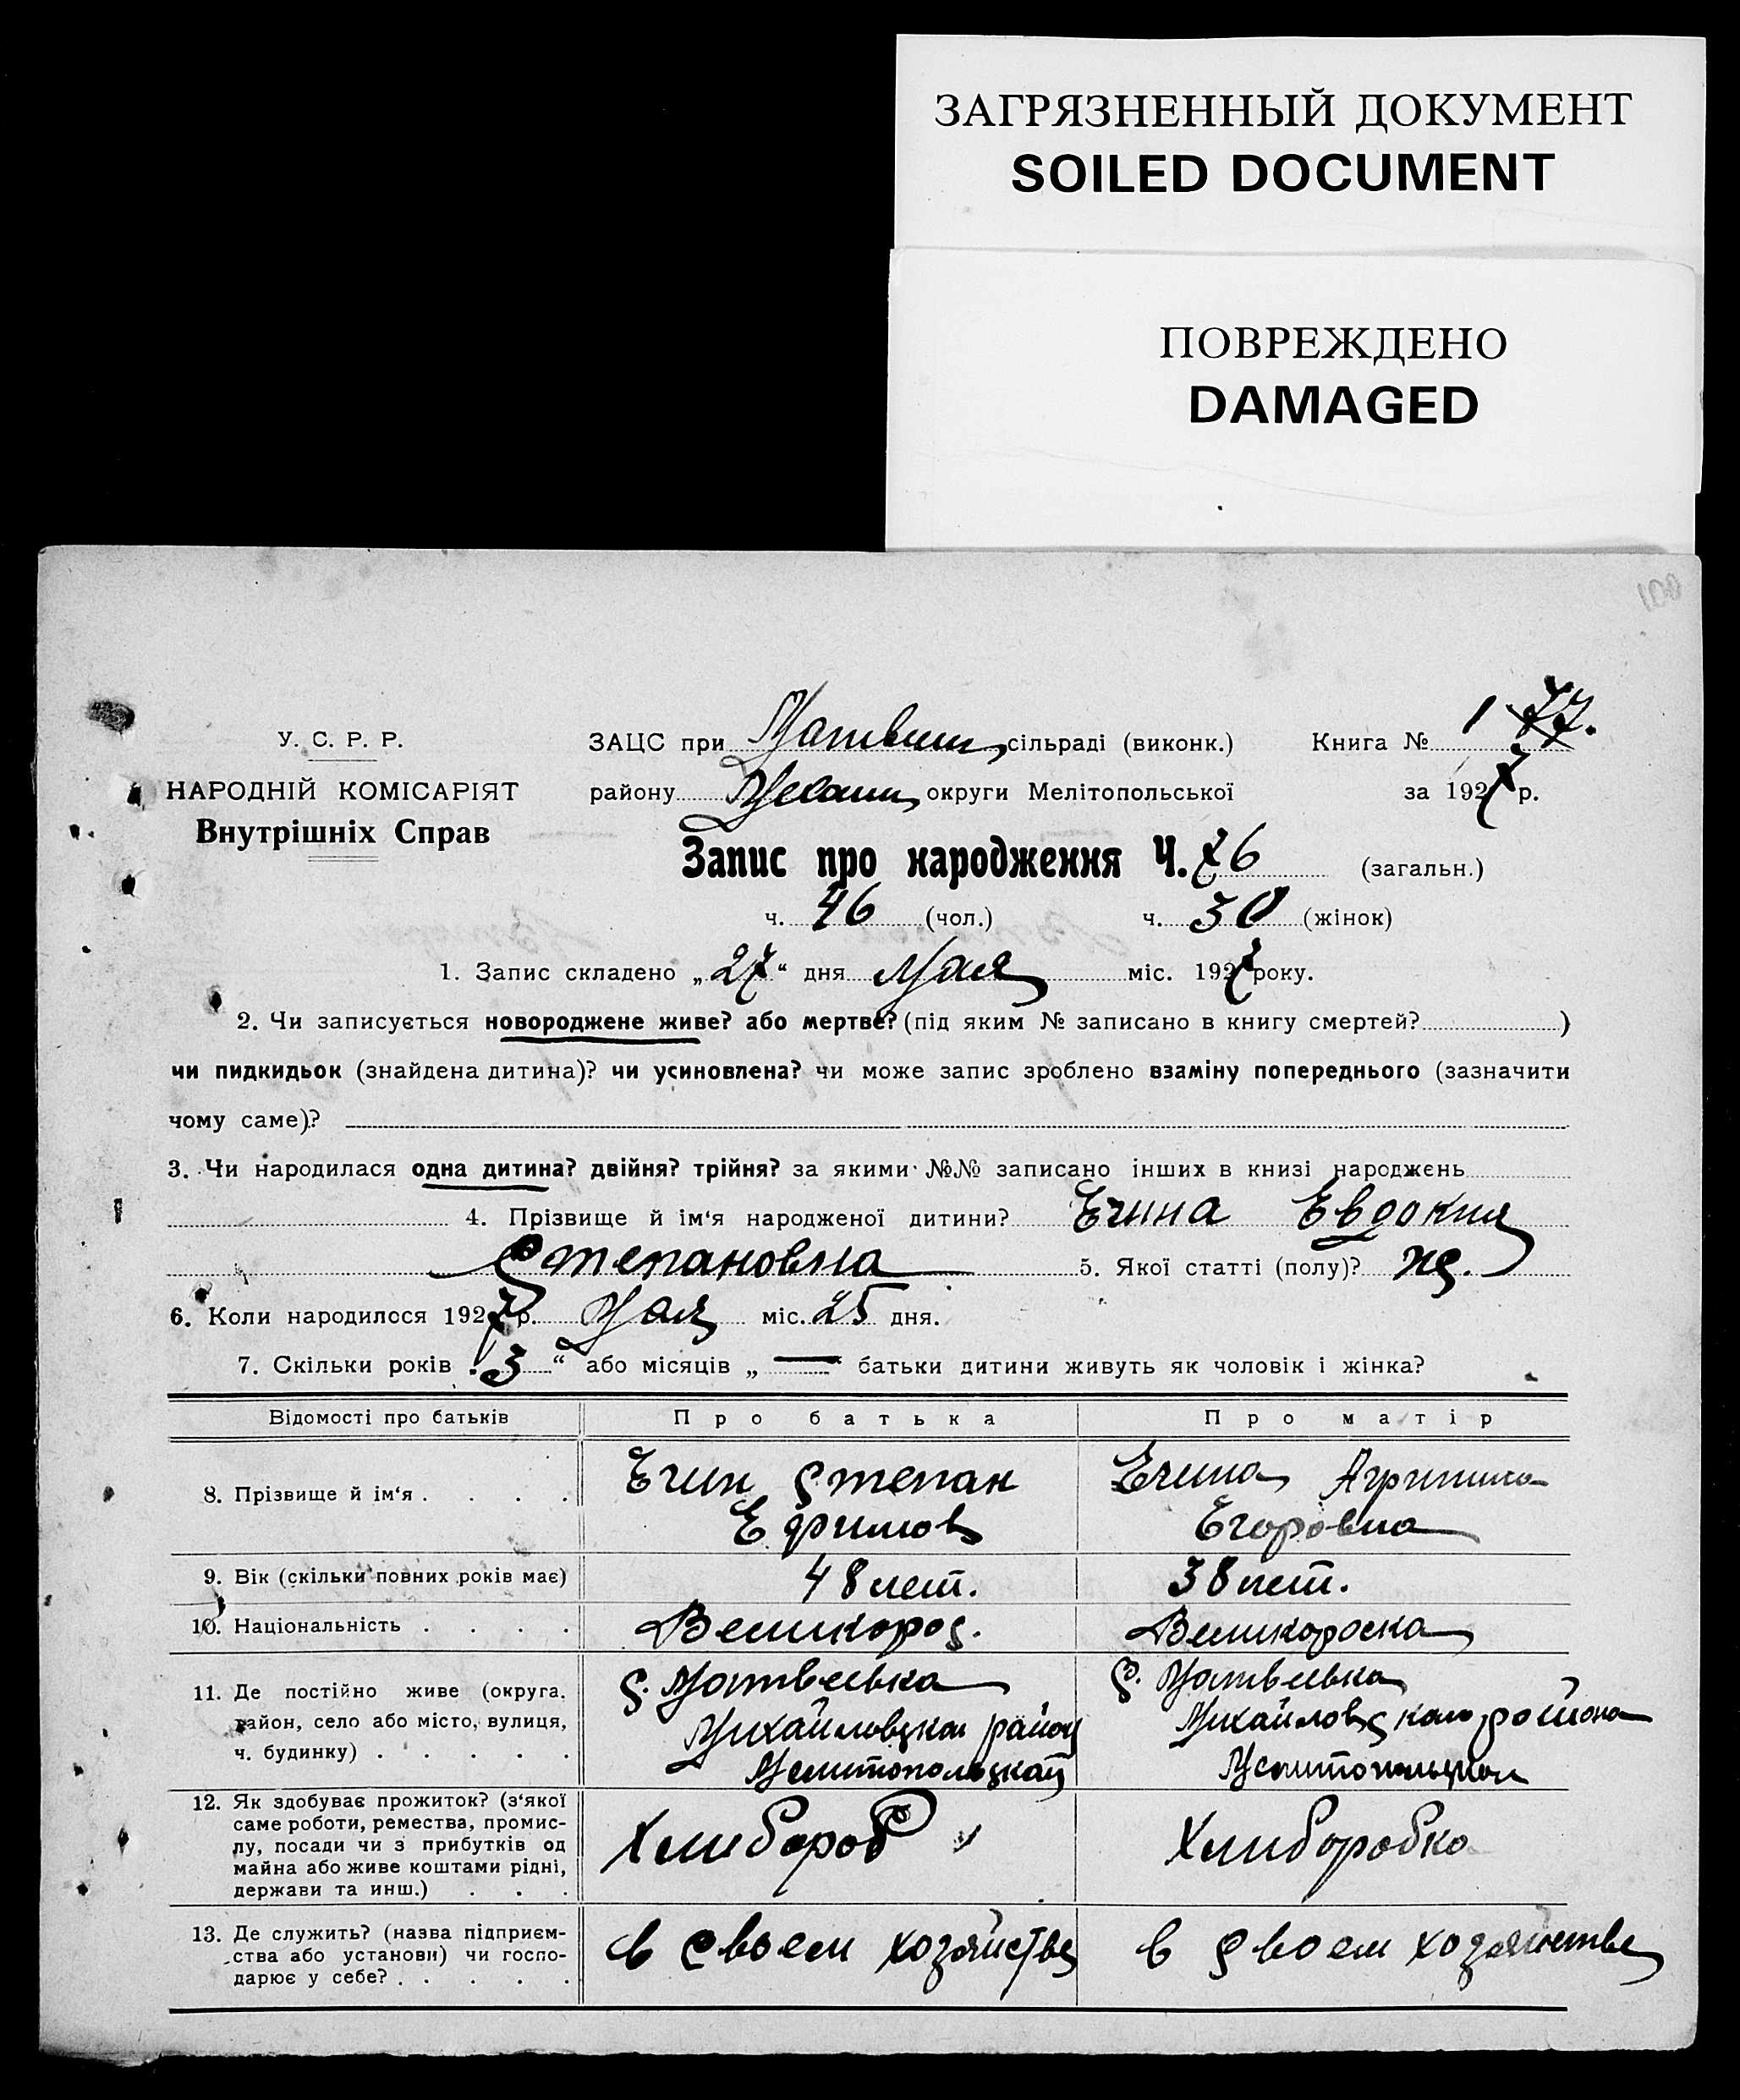 ЗАГРЯЗНЕННЫЙ ДОКУМЕНТ
SOILED DOCUMENT
ПОВРЕЖДЕНО
DAMAGED
У. С. Р. Р.
НАРОДНІЙ КОМІСАРІЯТ
Внутрішніх Справ
ЗАЦС при Матвеев, сільраді (виконк.) Книга № 1
району Михайл, округи Мелітопольської за 1927 р.
Запис про народження Ч. 76 (загальн.)
ч. 46 (чол.) ч. 30 (жінок)
1. Запис складено „27“ дня Мая міс. 1927 року.
2. Чи записується новороджене живе? або мертве? (під яким № записано в книгу смертей? )
чи пидкидьок (знайдена дитина)? чи усиновлена? чи може запис зроблено взаміну попереднього (зазначити
чому саме)?
3. Чи народилася одна дитина? двійня? трійня? за якими №№ записано інших в книзі народжень
4. Прізвище й ім'я народженої дитини? Ечина Евдокия
Степановна 5. Якої статті (полу)? ж.
6. Коли народилося 1927 р. Мая міс. 25 дня.
7. Скільки років „3“ або місяців „—“ батьки дитини живуть як чоловік і жінка?
Відомості про батьків Про батька Про матір
8. Прізвище й ім'я . . . . Ечин Степан Ечина Агрипина
Ефимов Егоровна
9. Вік (скільки повних років має) 48 лет. 38 лет.
10. Національність . . . . Великорос. Великороска
11. Де постійно живе (округа, район, село або місто, вулиця, ч. будинку) . . . . . с. Матвеевка с. Матвеевка
Михайловского района
12. Як здобуває прожиток? (з'якої
саме роботи, ремества, промис-
лу, посади чи з прибутків од
майна або живе коштами рідні,
держави та инш.) . . . Хлибороб Хлиборобка
13. Де служить? (назва підприєм-
ства або установи) чи госпо-
дарює у себе? . . . . . в своем хозяйстве в своем хозяйстве